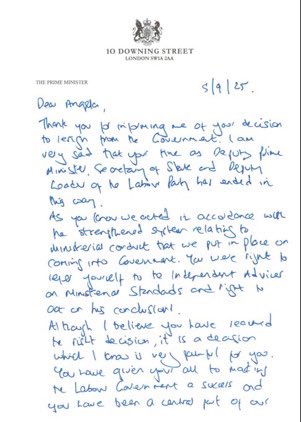 10 DOWNING STREET
LONDON SW1A 2AA
THE PRIME MINISTER
5/9/25.
Dear Angela,
Thank you for informing me of your decision
to resign from the Government. I am
very sad that your time as Deputy Prime
Minister, Secretary of State and Deputy
Leader of the Labour Party has ended in
this way.
As you know we acted in accordance with
the strengthened system relating to
ministerial conduct that we put in place on
coming into Government. You were right to
refer yourself to the Independent Adviser
on Ministerial Standards and right to
act on his conclusion.
Although I believe you have reached
the right decision, it is a decision
which I know is very painful for you.
You have given your all to making
the Labour Government a success and
you have been a central part of our